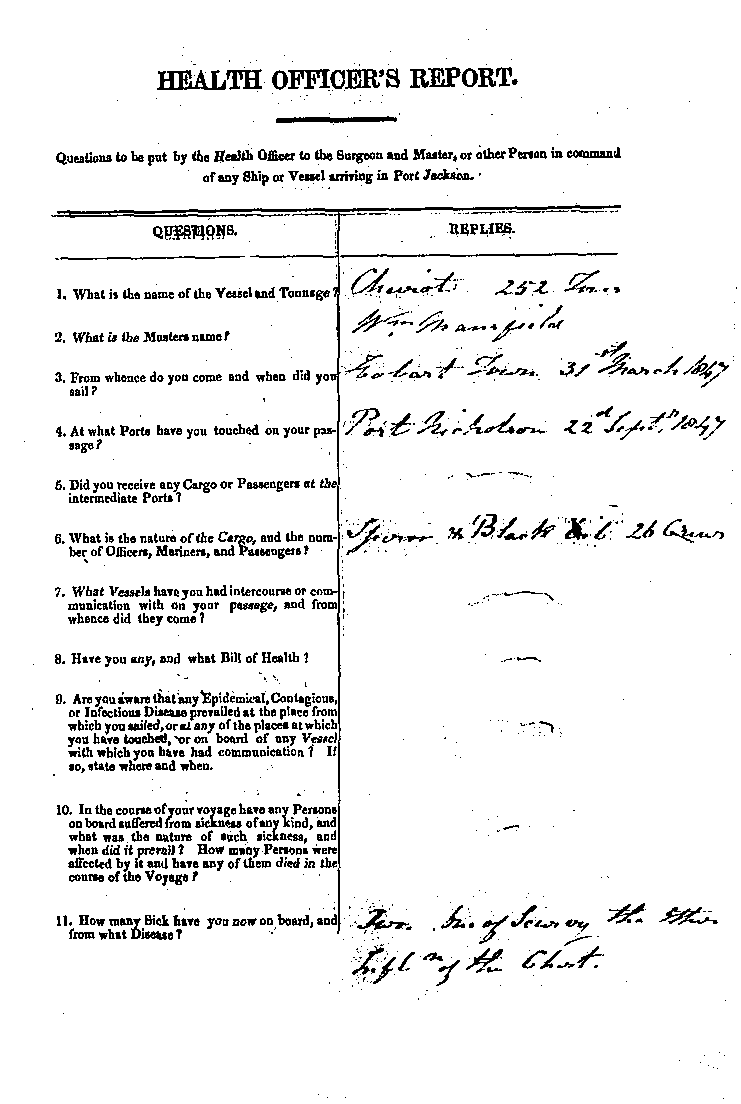 HEALTH OFFICER'S REPORT.
Questions to be put by the Health Officer to the Surgeon and Master, or other Person in command
of any Ship or Vessel arriving in Port Jackson.
QUESTIONS. REPLIES.
1. What is the name of the Vessel and Tonnage? Cheviot 252 Tons
2. What is the Masters name? Wm Mansfield
3. From whence do you come and when did you Hobart Town 31st March 1847
sail?
4. At what Ports have you touched on your pas- Port Nicholson 22d Septr 1847
sage?
5. Did you receive any Cargo or Passengers at the
intermediate Ports?
6. What is the nature of the Cargo, and the num- Sperm & Black Oil 26 Crew
ber of Officers, Mariners, and Passengers?
7. What Vessels have you had intercourse or com-
munication with on your passage, and from
whence did they come?
8. Have you any, and what Bill of Health?
9. Are you aware that any Epidemical, Contagious,
or Infectious Disease prevailed at the place from
which you sailed, or at any of the places at which
you have touched, or on board of any Vessel
with which you have had communication? If
so, state where and when.
10. In the course of your voyage have any Persons
on board suffered from sickness of any kind, and
what was the nature of such sickness, and
when did it prevail? How many Persons were
affected by it and have any of them died in the
course of the Voyage?
11. How many Sick have you now on board, and Two. One of Scurvy the other
from what Disease?
Infln of the Chest.